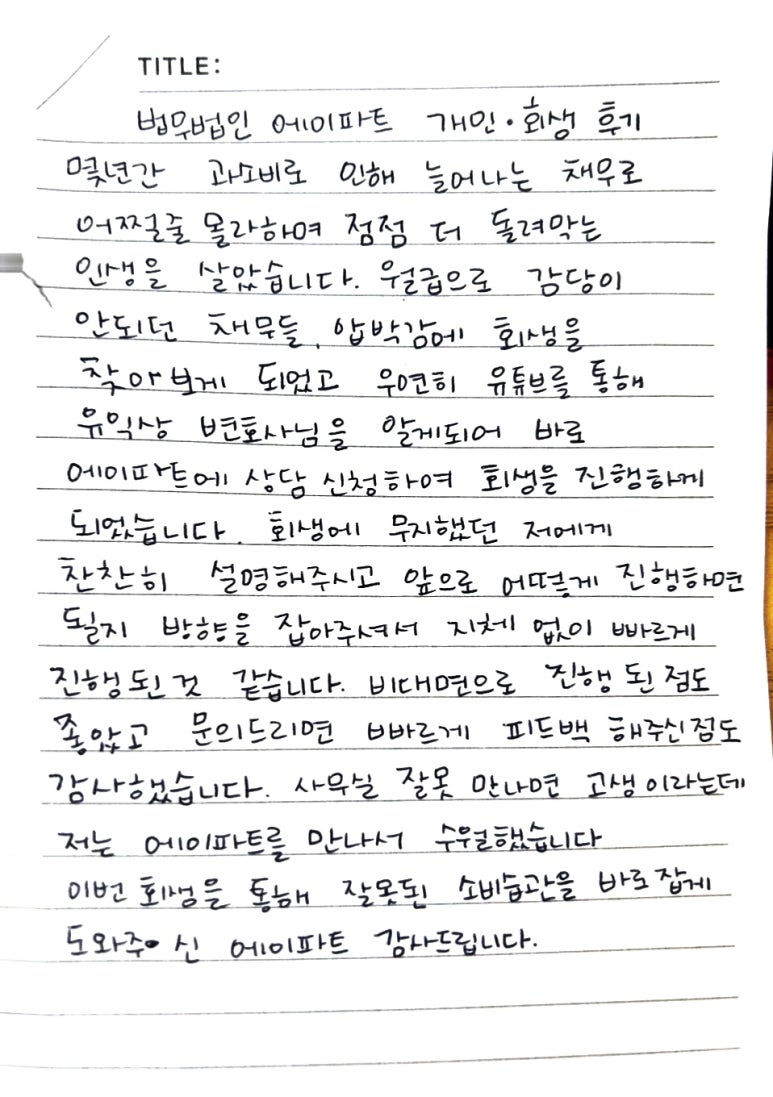 TITLE:
법무법인 에이파트 개인·회생 후기
몇년간 과소비로 인해 늘어나는 채무로
어쩌줄 몰라하며 점점 더 돌려막는
인생을 살았습니다. 월급으로 감당이
안되던 채무들, 압박감에 회생을
찾아보게 되었고 우연히 유튜브를 통해
유익상 변호사님을 알게되어 바로
에이파트에 상담 신청하여 회생을 진행하게
되었습니다. 회생에 무지했던 저에게
찬찬히 설명해주시고 앞으로 어떻게 진행하면
될지 방향을 잡아주셔서 지체 없이 빠르게
진행된것 같습니다. 비대면으로 진행 된점도
좋았고 문의드리면 빠르게 피드백 해주신점도
감사했습니다. 사무실 잘못 만나면 고생이라는데
저는 에이파트를 만나서 수월했습니다
이번 회생을 통해 잘못된 소비습관을 바로잡게
도와주신 에이파트 감사드립니다.